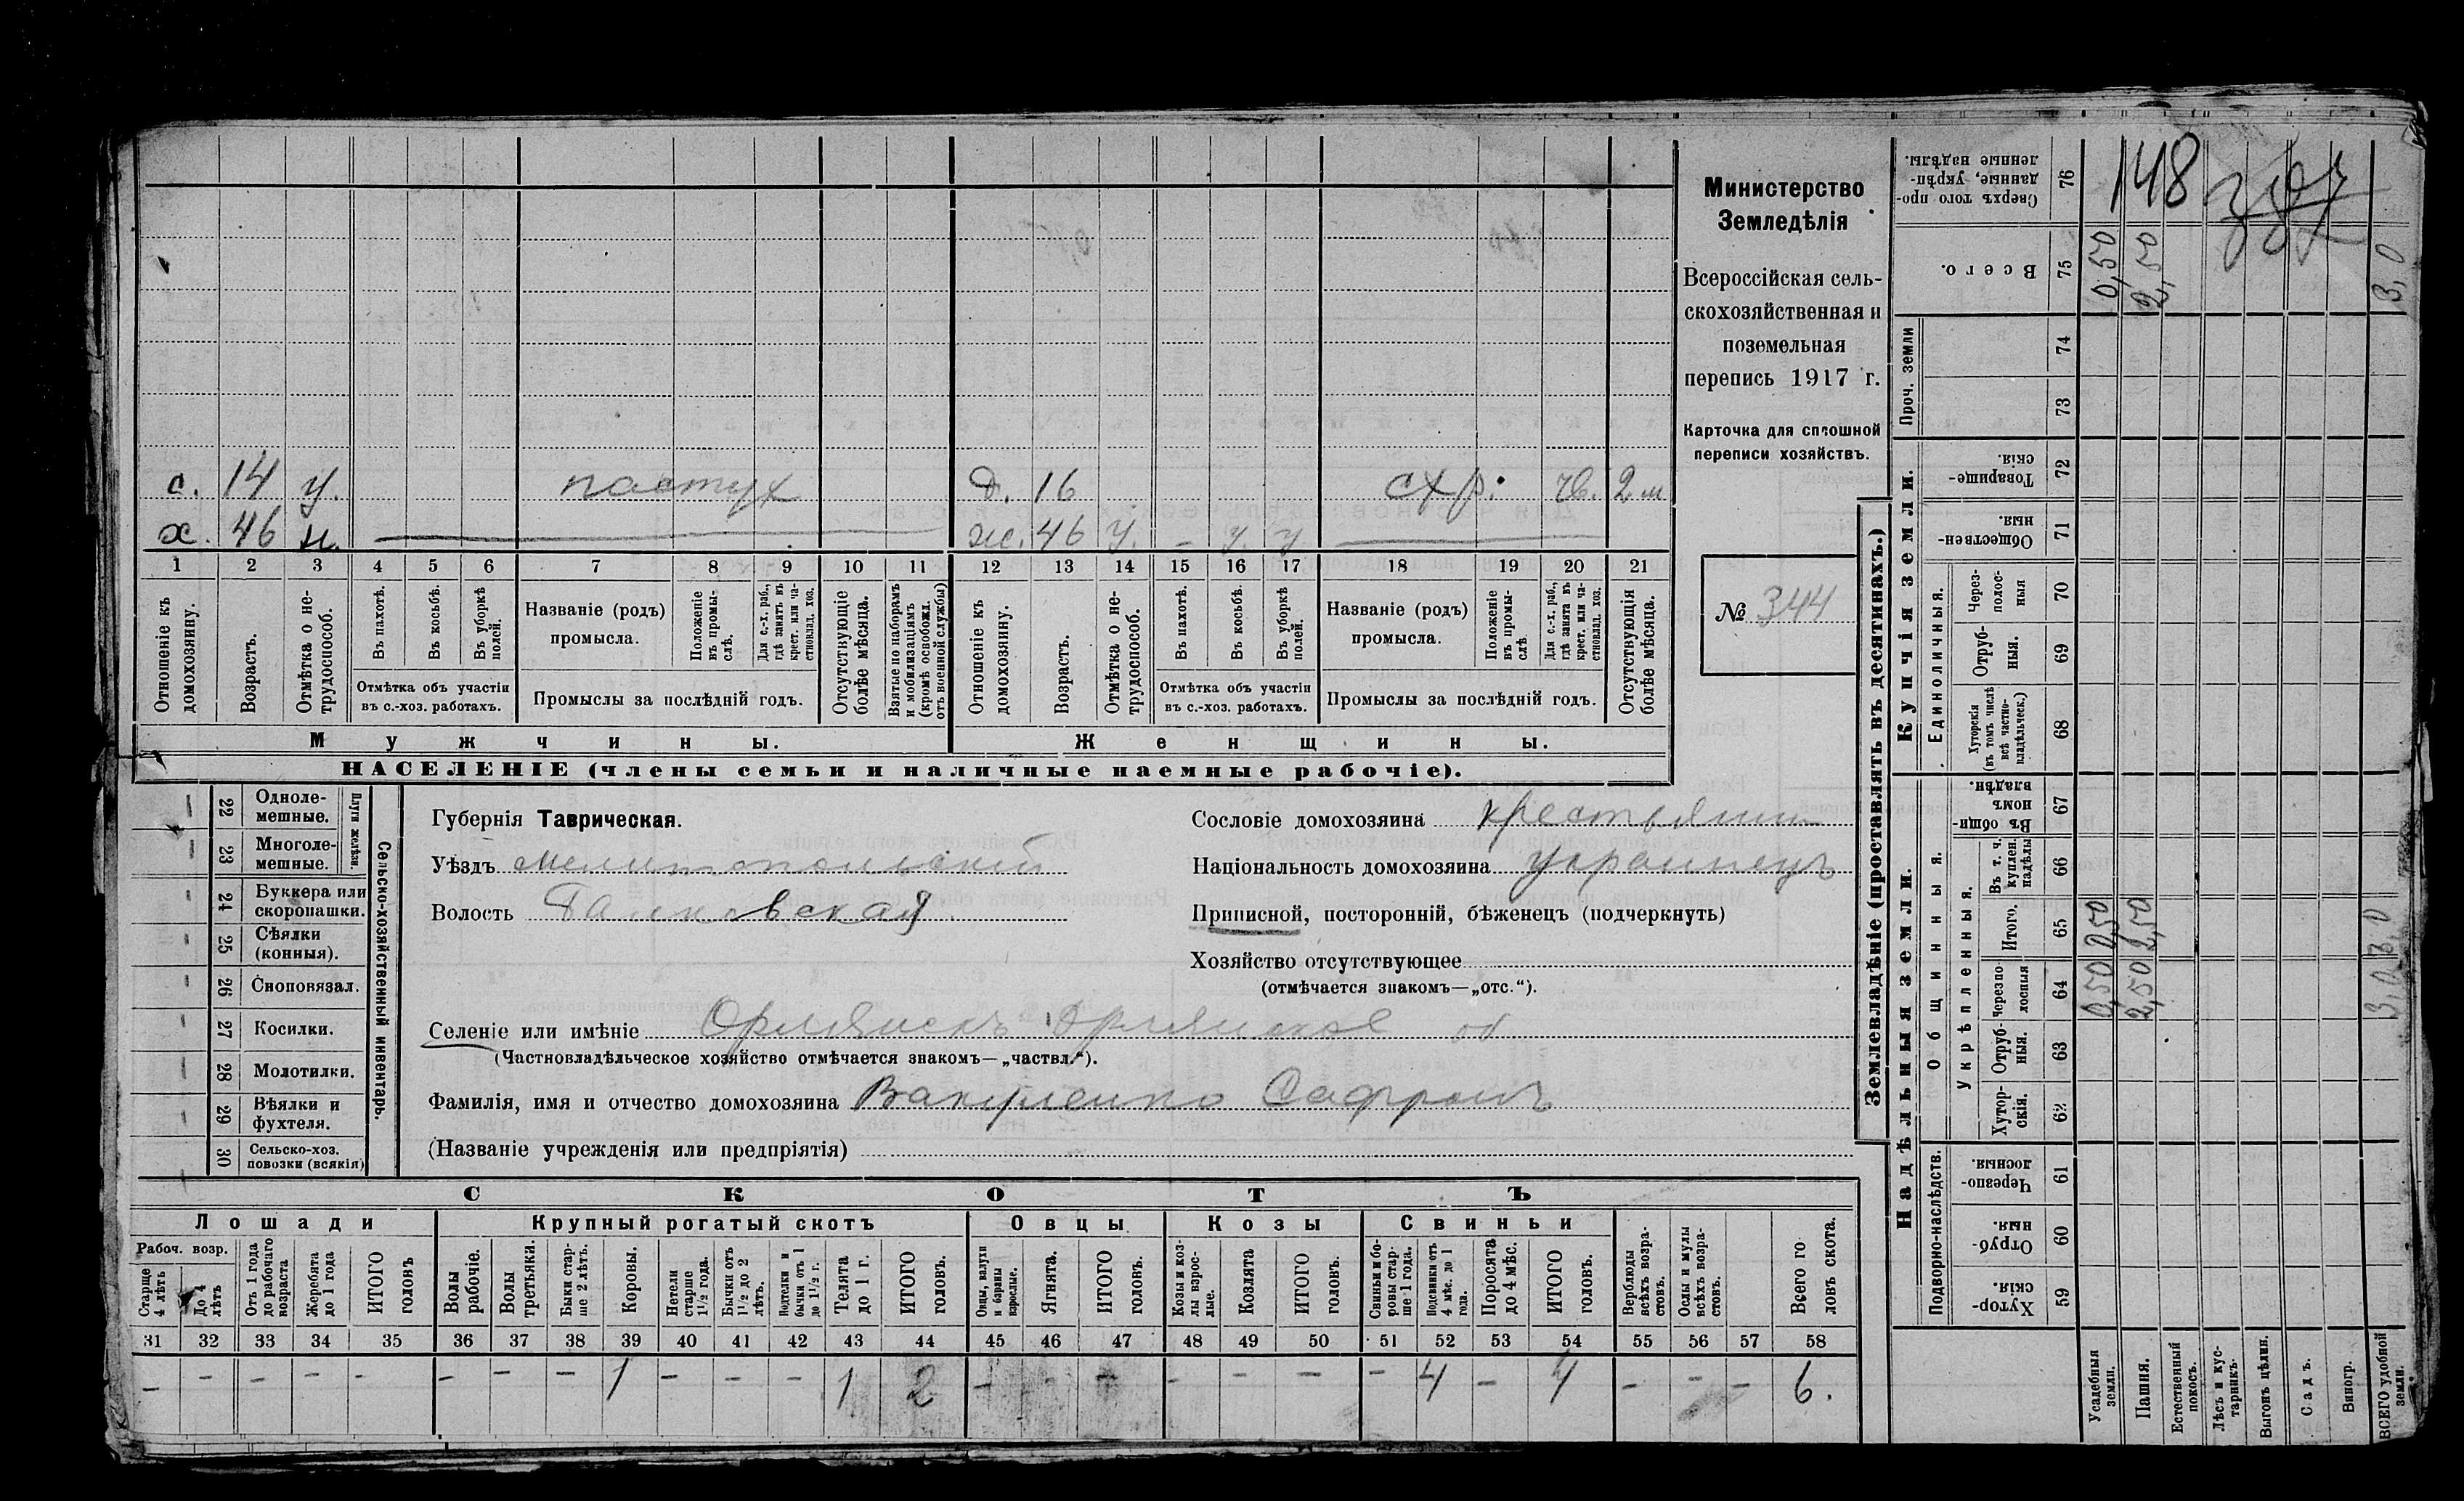 Министерство
Земледѣлія
Всероссійская сель-
скохозяйственная и
поземельная
перепись 1917 г.
Карточка для сплошной
переписи хозяйствъ.
№ 344
с. 14 у. пастух д. 16 схр. чв. 2 м
х. 46 н. ж. 46 у. - у. у
1 2 3 4 5 6 7 8 9 10 11 12 13 14 15 16 17 18 19 20 21
Отношеніе къ домохозяину.
Возрастъ.
Отмѣтка о не-трудоспособ.
Въ пахотѣ.
Въ косьбѣ.
Въ уборкѣ полей.
Отмѣтка объ участіи въ с.-хоз. работахъ.
Названіе (родъ) промысла.
Положеніе въ промы-слѣ.
Для с.-х. раб., гдѣ занятъ въ крест. или ча-стновлад. хоз.
Промыслы за послѣдній годъ.
Отсутствующіе болѣе мѣсяца.
Взятые по наборамъ и мобилизаціямъ (кромѣ освобожд. отъ военной службы)
Отношеніе къ домохозяину.
Возрастъ.
Отмѣтка о не-трудоспособ.
Въ пахотѣ.
Въ косьбѣ.
Въ уборкѣ полей.
Отмѣтка объ участіи въ с.-хоз. работахъ.
Названіе (родъ) промысла.
Положеніе въ промы-слѣ
Для с.-х. раб., гдѣ занята въ крест. или ча-стновлад. хоз.
Промыслы за послѣдній годъ.
Отсутствующія болѣе мѣсяца.
Мужчины.
Женщины.
НАСЕЛЕНІЕ (члены семьи и наличные наемные рабочіе).
Сельско-хозяйственный инвентарь.
Плуги желѣзн.
22 Одноле-мешные.
23 Многоле-мешные.
24 Буккера или скоропашки.
25 Сѣялки (конныя).
26 Сноповязал.
27 Косилки.
28 Молотилки.
29 Вѣялки и фухтеля.
30 Сельско-хоз. повозки (всякія)
Губернія Таврическая.
Уѣздъ Мелитопольскій
Волость
Сословіе домохозяина крестьянин
Національность домохозяина украинецъ
Приписной, посторонній, бѣженецъ (подчеркнуть)
Хозяйство отсутствующее
(отмѣчается знакомъ—„отс.“).
Селеніе или имѣніе Орлянскъ Орлянское об
(Частновладѣльческое хозяйство отмѣчается знакомъ—„частвл.“).
Фамилія, имя и отчество домохозяина Вакуленко Сафронъ
(Названіе учрежденія или предпріятія)
СКОТЪ
Лошади
Крупный рогатый скотъ
Овцы
Козы
Свиньи
Рабоч. возр.
Старше 4 лѣтъ
До 4 лѣтъ
Отъ 1 года до рабочаго возраста
Жеребята до 1 года
ИТОГО головъ
Волы рабочіе.
Волы третьяки.
Быки стар-ше 2 лѣтъ.
Коровы.
Нетели старше 1½ года.
Бычки отъ 1½ до 2 лѣтъ.
Подтелки и бычки отъ 1 до 1½ г.
Телята до 1 г.
ИТОГО головъ.
Овцы, валухи и бараны взрослые.
Ягнята.
ИТОГО головъ.
Козы и коз-лы взрос-лые.
Козлята
ИТОГО головъ.
Свиньи и бо-ровы стар-ше 1 года.
Подсвинки отъ 4 мѣс. до 1 года.
Поросята до 4 мѣс.
ИТОГО головъ.
Верблюды всѣхъ возра-стовъ.
Ослы и мулы всѣхъ возра-стовъ.
Всего го ловъ скота.
31 32 33 34 35 36 37 38 39 40 41 42 43 44 45 46 47 48 49 50 51 52 53 54 55 56 57 58
- - - - - - - - 1 - - - 1 2 - - - - - - - 4 - 4 - - - 6.
Землевладѣніе (проставлять въ десятинахъ.)
Надѣльныя земли.
Купчія земли.
Проч. земли
Подворно-наслѣдств.
Общинныя.
Укрѣпленныя.
Единоличныя.
76 Сверхъ того про-данные, укрѣп-ленные надѣлы.
148
75 Всего. 0,50 2,50 3,0
74
73
72 Товарище-скія.
71 Обществен-ныя.
70 Через-полос-ныя
69 Отруб-ныя.
68 Хуторскія (въ томъ числѣ всѣ частно-владѣльческ.)
67 Въ общи номъ владѣн.
66 Въ т. ч. куплен. надѣлы
65 Итого. 0,50 2,50 3,0
64 Черезпо-лосныя 0,50 2,50 3,0
63 Отруб-ныя.
62 Хутор-скія.
61 Черезпо-лосныя.
60 Отруб-ныя.
59 Хутор-скія.
Усадебныя земли.
Пашня.
Естественный покосъ.
Лѣсъ и кус-тарникъ.
Выгонъ цѣлин.
Садъ.
Виногр.
ВСЕГО удобной земли.